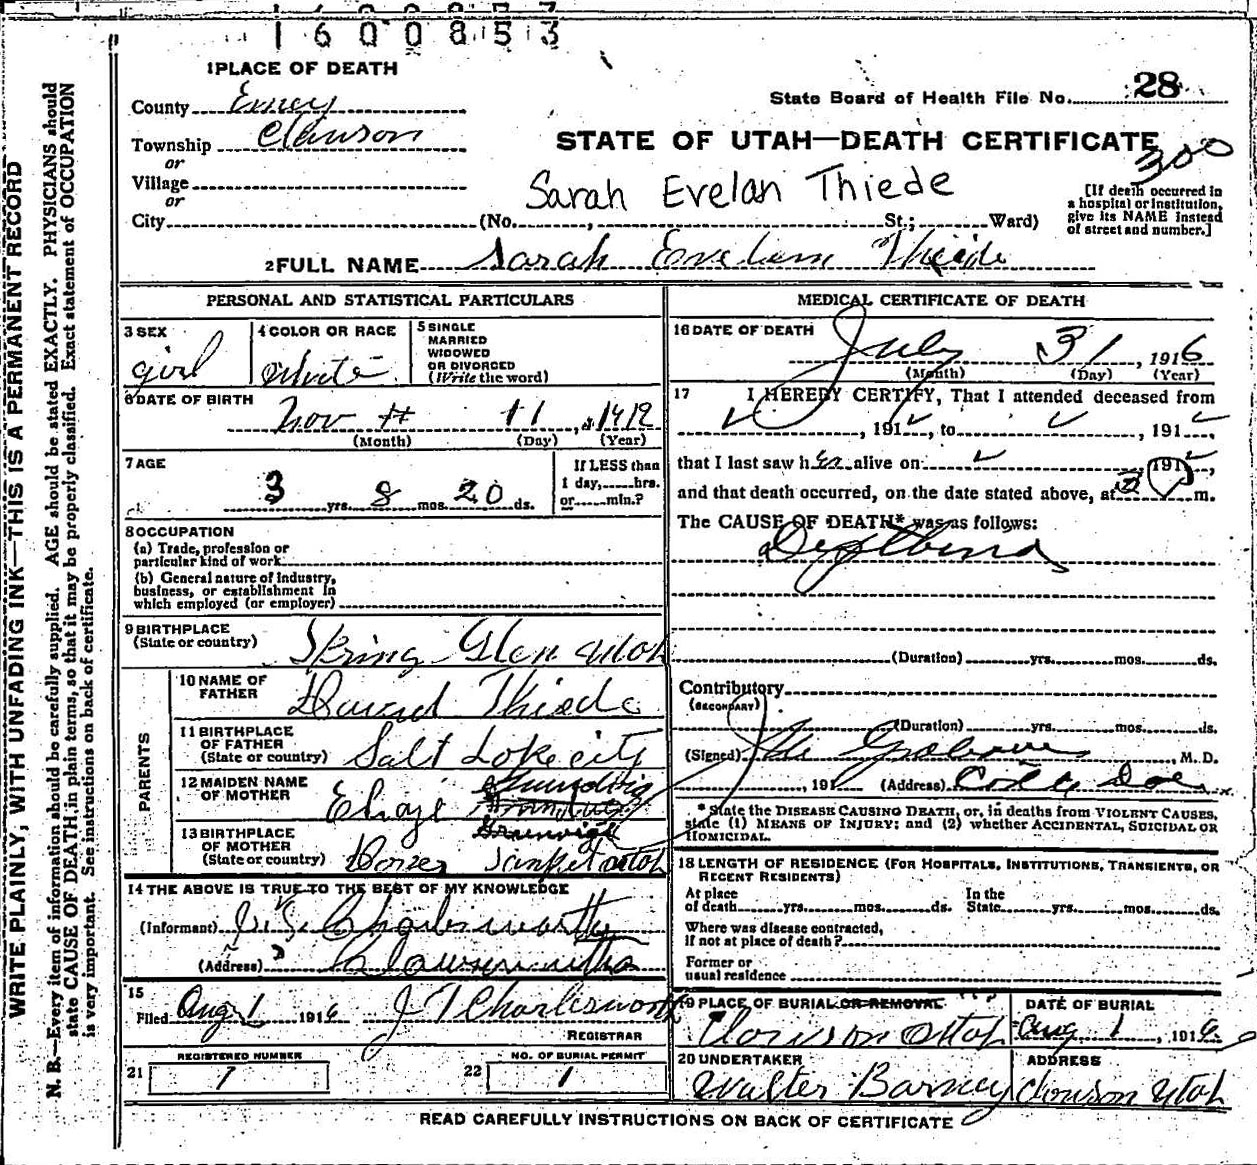 1600853
1 PLACE OF DEATH
County Emery
State Board of Health File No. 28
Township Clawson
STATE OF UTAH—DEATH CERTIFICATE
300
or
Village
or
Sarah Evelan Thiede
[If death occurred in
a hospital or institution,
give its NAME instead
of street and number.]
City (No. , St.; Ward)
2 FULL NAME Sarah Thiede
PERSONAL AND STATISTICAL PARTICULARS
3 SEX
girl
4 COLOR OR RACE
White
5 SINGLE
MARRIED
WIDOWED
OR DIVORCED
(Write the word)
6 DATE OF BIRTH
Nov 11 , 1912
(Month) (Day) (Year)
7 AGE
3 yrs. 8 mos. 20 ds.
If LESS than
1 day, hrs.
or min.?
8 OCCUPATION
(a) Trade, profession or
particular kind of work
(b) General nature of industry,
business, or establishment in
which employed (or employer)
9 BIRTHPLACE
(State or country)
Spring Glen Utah
PARENTS
10 NAME OF
FATHER
David Thiede
11 BIRTHPLACE
OF FATHER
(State or country)
Salt Lake city
12 MAIDEN NAME
OF MOTHER
13 BIRTHPLACE
OF MOTHER
(State or country)
Sanpete Utah
14 THE ABOVE IS TRUE TO THE BEST OF MY KNOWLEDGE
(Informant) Charlesworth
(Address) Clawson
15
Filed Aug 1 1916 J T Charlesworth
REGISTRAR
21 REGISTERED NUMBER
7
22 NO. OF BURIAL PERMIT
1
MEDICAL CERTIFICATE OF DEATH
16 DATE OF DEATH
July 31 , 1916
(Month) (Day) (Year)
17 I HEREBY CERTIFY, That I attended deceased from
, 191 , to , 191 ,
that I last saw her alive on , 191 ,
and that death occurred, on the date stated above, at m.
The CAUSE OF DEATH* was as follows:
(Duration) yrs. mos. ds.
Contributory
(SECONDARY)
(Duration) yrs. mos. ds.
(Signed) , M. D.
, 191 (Address)
* State the DISEASE CAUSING DEATH, or, in deaths from VIOLENT CAUSES,
state (1) MEANS OF INJURY; and (2) whether ACCIDENTAL, SUICIDAL OR
HOMICIDAL.
18 LENGTH OF RESIDENCE (FOR HOSPITALS, INSTITUTIONS, TRANSIENTS, OR
RECENT RESIDENTS)
At place
of death yrs. mos. ds.
In the
State yrs. mos. ds.
Where was disease contracted,
if not at place of death?
Former or
usual residence
19 PLACE OF BURIAL OR REMOVAL
Clawson Utah
DATE OF BURIAL
Aug 1 , 1916
20 UNDERTAKER
Walter Barney
ADDRESS
Clawson Utah
READ CAREFULLY INSTRUCTIONS ON BACK OF CERTIFICATE
WRITE PLAINLY, WITH UNFADING INK—THIS IS A PERMANENT RECORD
N. B.—Every item of information should be carefully supplied. AGE should be stated EXACTLY. PHYSICIANS should
state CAUSE OF DEATH in plain terms, so that it may be properly classified. Exact statement of OCCUPATION
is very important. See instructions on back of certificate.